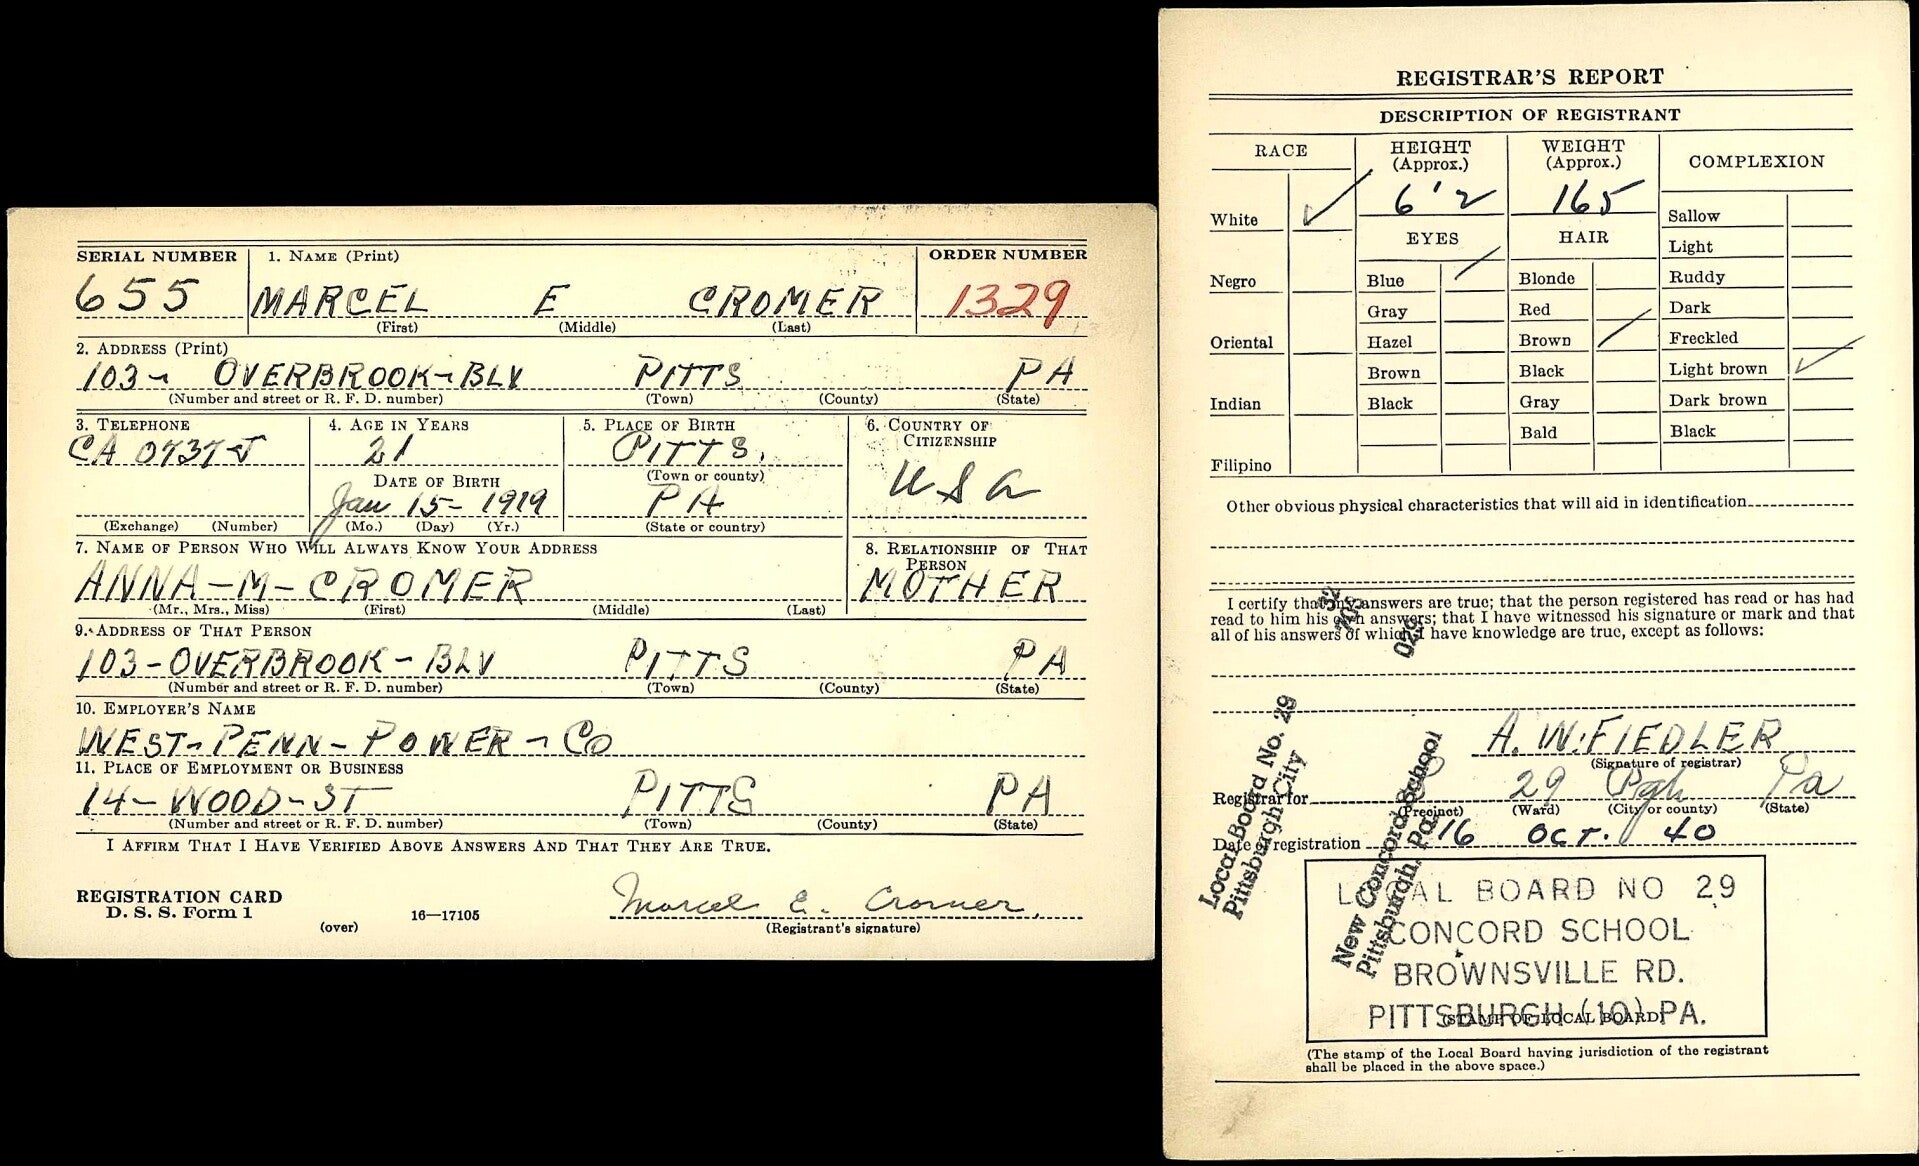 SERIAL NUMBER 1. NAME (Print) ORDER NUMBER
655 MARCEL E CROMER 1329
(First) (Middle) (Last)
2. ADDRESS (Print)
103- OVERBROOK-BLV PITTS PA
(Number and street or R. F. D. number) (Town) (County) (State)
3. TELEPHONE 4. AGE IN YEARS 5. PLACE OF BIRTH 6. COUNTRY OF CITIZENSHIP
CA 0737-J 21 PITTS.
(Town or county)
DATE OF BIRTH USA
Jan 15- 1919 PA
(Exchange) (Number) (Mo.) (Day) (Yr.) (State or country)
7. NAME OF PERSON WHO WILL ALWAYS KNOW YOUR ADDRESS 8. RELATIONSHIP OF THAT PERSON
ANNA-M-CROMER MOTHER
(Mr., Mrs., Miss) (First) (Middle) (Last)
9. ADDRESS OF THAT PERSON
103-OVERBROOK-BLV PITTS PA
(Number and street or R. F. D. number) (Town) (County) (State)
10. EMPLOYER'S NAME
WEST-PENN-POWER-CO
11. PLACE OF EMPLOYMENT OR BUSINESS
14-WOOD-ST PITTS PA
(Number and street or R. F. D. number) (Town) (County) (State)
I AFFIRM THAT I HAVE VERIFIED ABOVE ANSWERS AND THAT THEY ARE TRUE.
REGISTRATION CARD
D. S. S. Form 1 16—17105 Marcel E. Cromer.
(over) (Registrant's signature)
REGISTRAR'S REPORT
DESCRIPTION OF REGISTRANT
RACE HEIGHT (Approx.) WEIGHT (Approx.) COMPLEXION
6'2 165
White ✓ Sallow
EYES HAIR Light
Negro Blue / Blonde Ruddy
Gray Red Dark
Oriental Hazel Brown / Freckled
Brown Black Light brown ✓
Indian Black Gray Dark brown
Bald Black
Filipino
Other obvious physical characteristics that will aid in identification
I certify that my answers are true; that the person registered has read or has had
read to him his own answers; that I have witnessed his signature or mark and that
all of his answers of which I have knowledge are true, except as follows:
32
029
A. W. FIEDLER
(Signature of registrar)
Registrar for 29 Pgh Pa
(Precinct) (Ward) (City or county) (State)
Date of registration 16 OCT. 40
Local Board No. 29
Pittsburgh City
New Concord School
Pittsburgh, Pa.
LOCAL BOARD NO 29
CONCORD SCHOOL
BROWNSVILLE RD.
PITTSBURGH (10) PA.
(STAMP OF LOCAL BOARD)
(The stamp of the Local Board having jurisdiction of the registrant
shall be placed in the above space.)